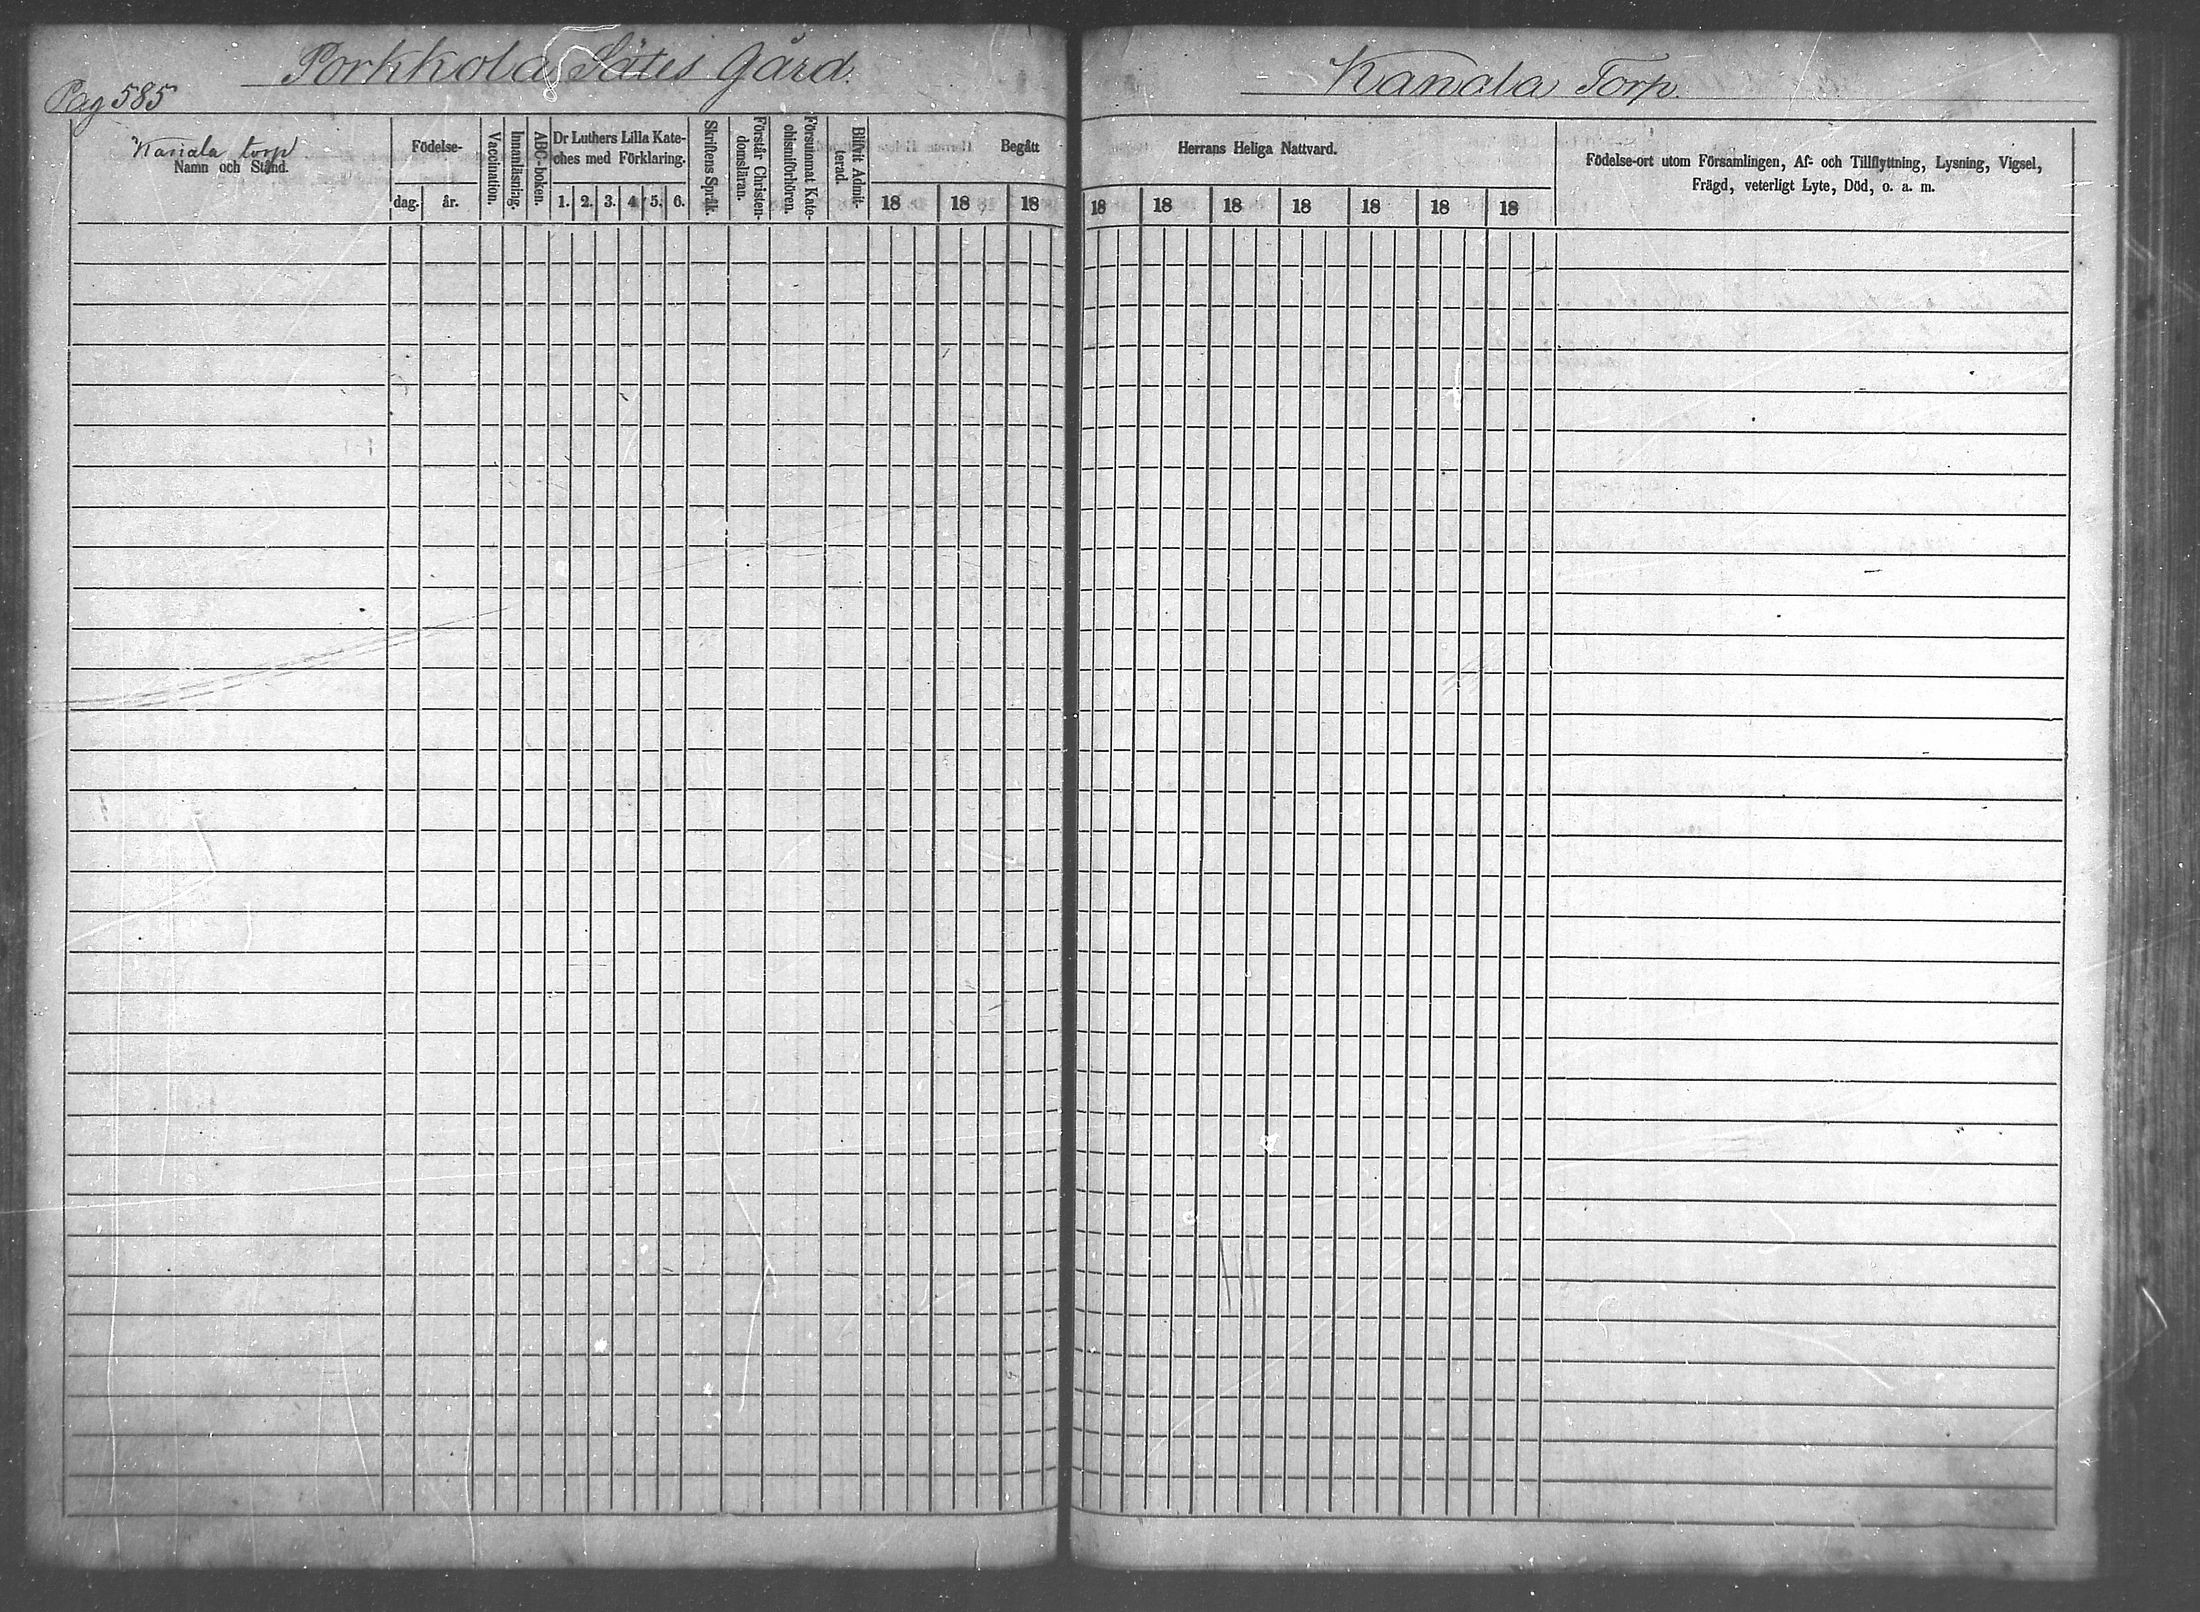 Porkkola Sätes gård.
Pag 585
Kanala Torp.
Kanala torp
Namn och Stånd.
Födelse-
dag.
år.
Vaccination.
Innanläsning.
ABC-boken.
Dr Luthers Lilla Kate-
ches med Förklaring.
1. 2. 3. 4. 5. 6.
Skriftens Språk.
Förstår Christen-
domsläran.
Försummat Kate-
chismiförhören.
Blifvit Admit-
terad.
Begått
18 18 18
Herrans Heliga Nattvard.
18 18 18 18 18 18 18
Födelse-ort utom Församlingen, Af- och Tillflyttning, Lysning, Vigsel,
Frägd, veterligt Lyte, Död, o. a. m.